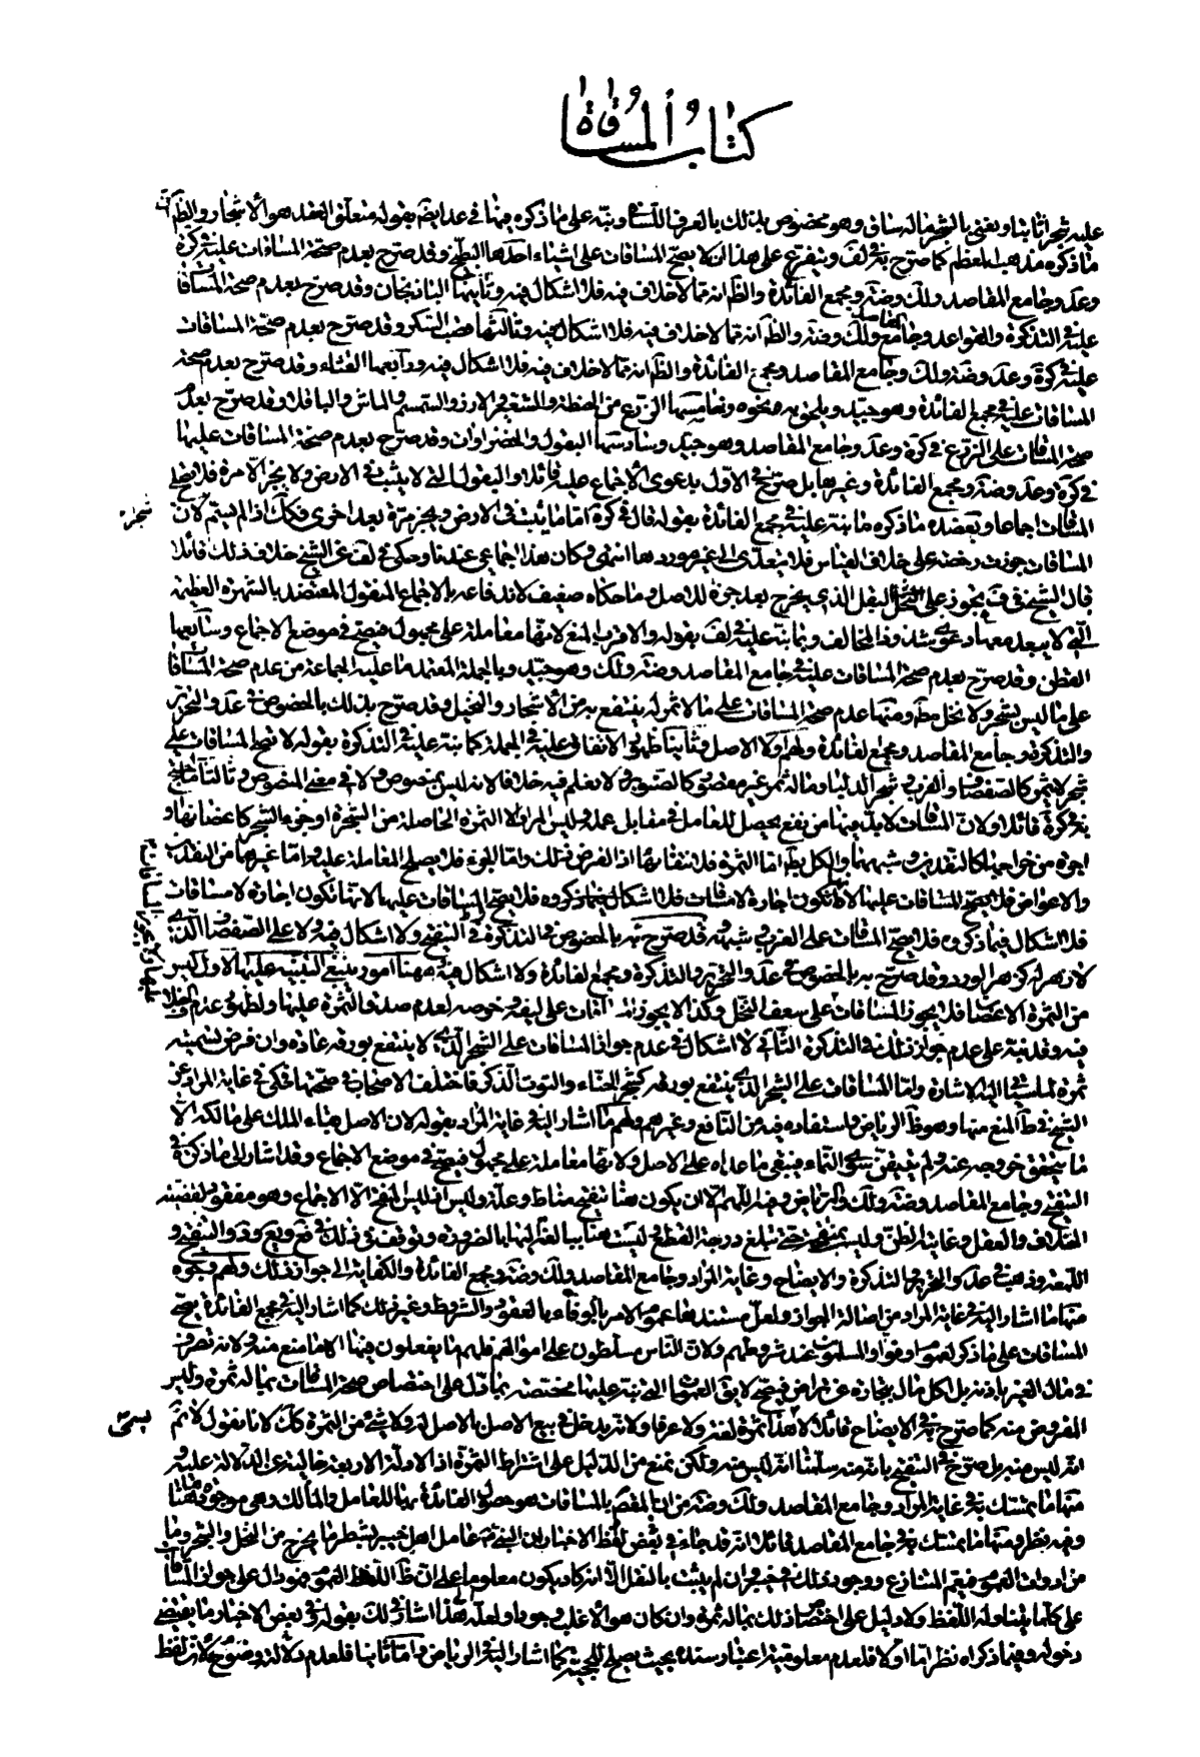 كتاب المساقاة
عليه شجرا ثابتا ويعنى بالشجر ماله ساق وهو مخصوص بذلك بالعرف اللسان ونبّه على ما ذكره فيما في عد ايضا بقوله متعلق العقد هو الأشجار والظ انّ
ما ذكروه مذهب المعظم كما صرّح به في لف ويتفرع على هذا ان لا يصح المساقات على اشياء احدها البطيخ وقد صرّح بعدم صحة المساقات عليه في كرة
وعد وجامع المقاصد ولك وضه ومجمع الفائدة والظ انه مما لا خلاف فيه فلا اشكال فيه وثانيها الباذنجان وقد صرّح بعدم صحة المساقات
عليه في التذكرة والقواعد وجامع المقاصد ولك وضه والظ انه مما لا خلاف فيه فلا اشكال فيه وثالثها قصب السكر وقد صرّح بعدم صحة المساقات
عليه في كرة وعد وضه ولك وجامع المقاصد ومجمع الفائدة والظ انه مما لا خلاف فيه فلا اشكال فيه ورابعها القثاء وقد صرّح بعدم صحة
المساقات عليه في مجمع الفائدة وهو جيّد ويلحق به ونحوه وخامسها الزرع من الحنطة والشعير والارز والسمسم والماش والباقلا وقد صرّح بعدم
صحة المساقات على الزرع في كرة وعد وجامع المقاصد وهو جيّد وسادسها البقول والخضراوات وقد صرّح بعدم صحة المساقات عليها
في كرة وعد وضه ومجمع الفائدة وغيرها بل صرّح في الاوّل بدعوى الاجماع عليه قائلا والبقول التي لا يثبت في الارض ولا يجز الا مرة فلا يصح
المساقات اجماعا ويعضده ما ذكره ما نبه عليه في مجمع الفائدة بقوله قال في كرة امّا ما يثبت في الارض ويجز مرّة بعد اخرى فكك اذا لم يتمّ لانّ
المساقات جوزت رخصة على خلاف القياس فلا يتعدّى الى غير موردها انتهى وكان هذا اجماعي عندنا وحكى في لف عن الشيخ خلاف ذلك قائلا
قال الشيخ في ف يجوز على البقل الذي يخرج بعد جزه للاصل وما حكاه ضعيف لاندفاعه بالاجماع المنقول المعتضد بالشهرة العظيمة
الّتي لا يبعد معها دعوى شذوذ المخالف وبما نبه عليه في لف بقوله والاقرب المنع لانها معاملة على مجهول فيصح في موضع الاجماع وسابعها
القطن وقد صرّح بعدم صحة المساقات عليه في جامع المقاصد وضه ولك وهو جيّد وبالجملة المعتمد ما عليه الجماعة من عدم صحة المساقات
على ما ليس بشجر ولا نخل مط ومنها عدم صحة المساقات على ما لا ثمر له ينتفع به من الأشجار والنخيل وقد صرّح بذلك بالخصوص في عد والتحرير
والتذكرة وجامع المقاصد ومجمع الفائدة ولهم اولا الاصل وثانيا ظهور الاتفاق عليه في الجملة كما نبه عليه في التذكرة بقوله لا تصح المساقات على
شجر لا يثمر كالصفصاف والغرب وشجر الدلب او ماله ثمر غير مقصود كالصنوبر ولا نعلم فيه خلافا لانه ليس بمنصوص ولا في معنى المنصوص وثالثا ما
في كرة قائلا ولانّ المساقات لا بد فيها من نفع يحصل للعامل في مقابل عمله وليس المراد الا الثمرة الحاصلة من الشجرة او جزء الشجر كاعضائها او
اجرة من خواجيه كالنقدين وشبههما والكل بط امّا الثمرة فلانتفائها اذ الفرض ذلك وامّا الجزء فلا يصح المعاملة عليه وامّا غيرها من النقد
والاعواض فلا يصح المساقات عليها لانها تكون اجارة لا مساقات فلا اشكال فيما ذكروه فلا يصح المساقات عليها لانها تكون اجارة لا مساقات
فلا اشكال فيما ذكروه فلا يصح المساقات على الغرب وشبهه وقد صرّح به بالخصوص في التذكرة في التنقيح ولا اشكال فيه ولا على الصفصاف الذي
لا زهر له كزهر الورد وقد صرّح به بالخصوص في عد والتحرير والتذكرة ومجمع الفائدة ولا اشكال فيه وههنا أمور ينبغي التنبيه عليها الاول ليس
من الثمرة الاغصان فلا يجوز المساقات على سعف النخل وكذا لا يجوز المساقات على ليفه وخوصه لعدم صدق الثمرة عليها ولظهور عدم الخلاف
فيه وقد نبه على عدم جواز ذلك في التذكرة الثاني لا اشكال في عدم جواز المساقات على الشجر الذي لا ينتفع بورقه عادة وان فرض تسميته
ثمرة لما سبق اليه الاشارة وامّا المساقات على الشجر الذي ينتفع بورقه كشجر الحناء والتوت الذكر فاختلف الاصحاب في صحتها فحكى في غاية المراد عن
الشيخ في ط المنع منها وهو ظ الرياض واستفاده فيه من النافع وغيره ولهم ما اشار اليه في غاية المراد بقوله لان الاصل بقاء الملك على مالكه الّا
ما يتحقق خروجه عنه ولم يتيقن سوى النماء فيبقى ما عداه على الاصل ولانها معاملة على مجهول فيصح في موضع الاجماع وقد اشار الى ما ذكره في
التنقيح وجامع المقاصد وضه ولك والرياض وفيه اللهم الّا ان يكون هنا تنقيح مناط وعلّة وليس اذ ليس المنقح الّا الاجماع وهو مفقود لقضية
الخلاف والعقل وغايته الظن وليس بمنقح حتى تبلغ درجة القطع وليست هنا بالغا اليها بالضرورة وتوقف في ذلك في فع ويع وذ والتنقيح و
اللمعة وذهب في عد والتحرير والتذكرة والايضاح وغاية المراد وجامع المقاصد ولك وضه ومجمع الفائدة والكفاية الى جواز ذلك ولهم وجوه
منها ما اشار اليه في غاية المراد من اصالة الجواز ولعلّ مستندها عموم الامر بالوفاء بالعقود والشروط وغير ذلك كما اشار اليه في مجمع الفائدة يصح
المساقات على ما ذكر لعموم اوفوا والمسلمون عند شروطهم ولانّ الناس مسلطون على اموالهم فلهم ما يفعلون فيها الا ما منع منه ولانه تصرف
في مال الغير باذنه بل اكل مال بتجارة عن تراض فيصح لا يق العمومات المزبورة عليها مختصة بما دل على اختصاص صحة المساقات بماله ثمرة وليس
المفروض منه كما صرّح به في الايضاح قائلا هذا ثمرة لغة ولا عرفا ولانه يدخل في بيع الاصل بالاصل له ولا شئ من الثمرة كك لانا نقول لا نم
انه ليس منه بل صرّح في التنقيح بانه منه سلّمنا انه ليس منه ولكن نمنع من الدليل على اشتراط الثمرة اذ الادلّة الاربعة خالية عن الدلالة عليه و
منها ما تمسّك به في غاية المراد وجامع المقاصد ولك وضه من ان المقص بالمساقات هو حصول الفائدة بها للعامل والمالك وهى موجودة هنا
وفيه نظر ومنها ما تمسّك به في جامع المقاصد قائلا انه قد جاء في بعض لفظ الاخبار ان النبي ص عامل اهل خيبر بشطر ما يخرج من النخل والشجر وما
من ادوات العموم فيعم المتنازع ووجود ذلك في خيبر وان لم يثبت بالنقل الّا انه كاد يكون معلوما على ان ظ اللفظ العموم فهو دال على جواز المساقات
على كلما يتناوله اللفظ ولا دليل على اختصاص ذلك بماله ثمرة وان كان هو الأغلب وجودا ولعله لهذا اشار في لك بقوله وفى بعض الاخبار ما يقتضي
دخوله وفيما ذكراه نظر امّا اولا فلعدم معلومية اعتبار سنده بحيث يصلح للحجية كما اشار اليه في الرياض وامّا ثانيا فلعدم دلالته وضوح لأن لفظ